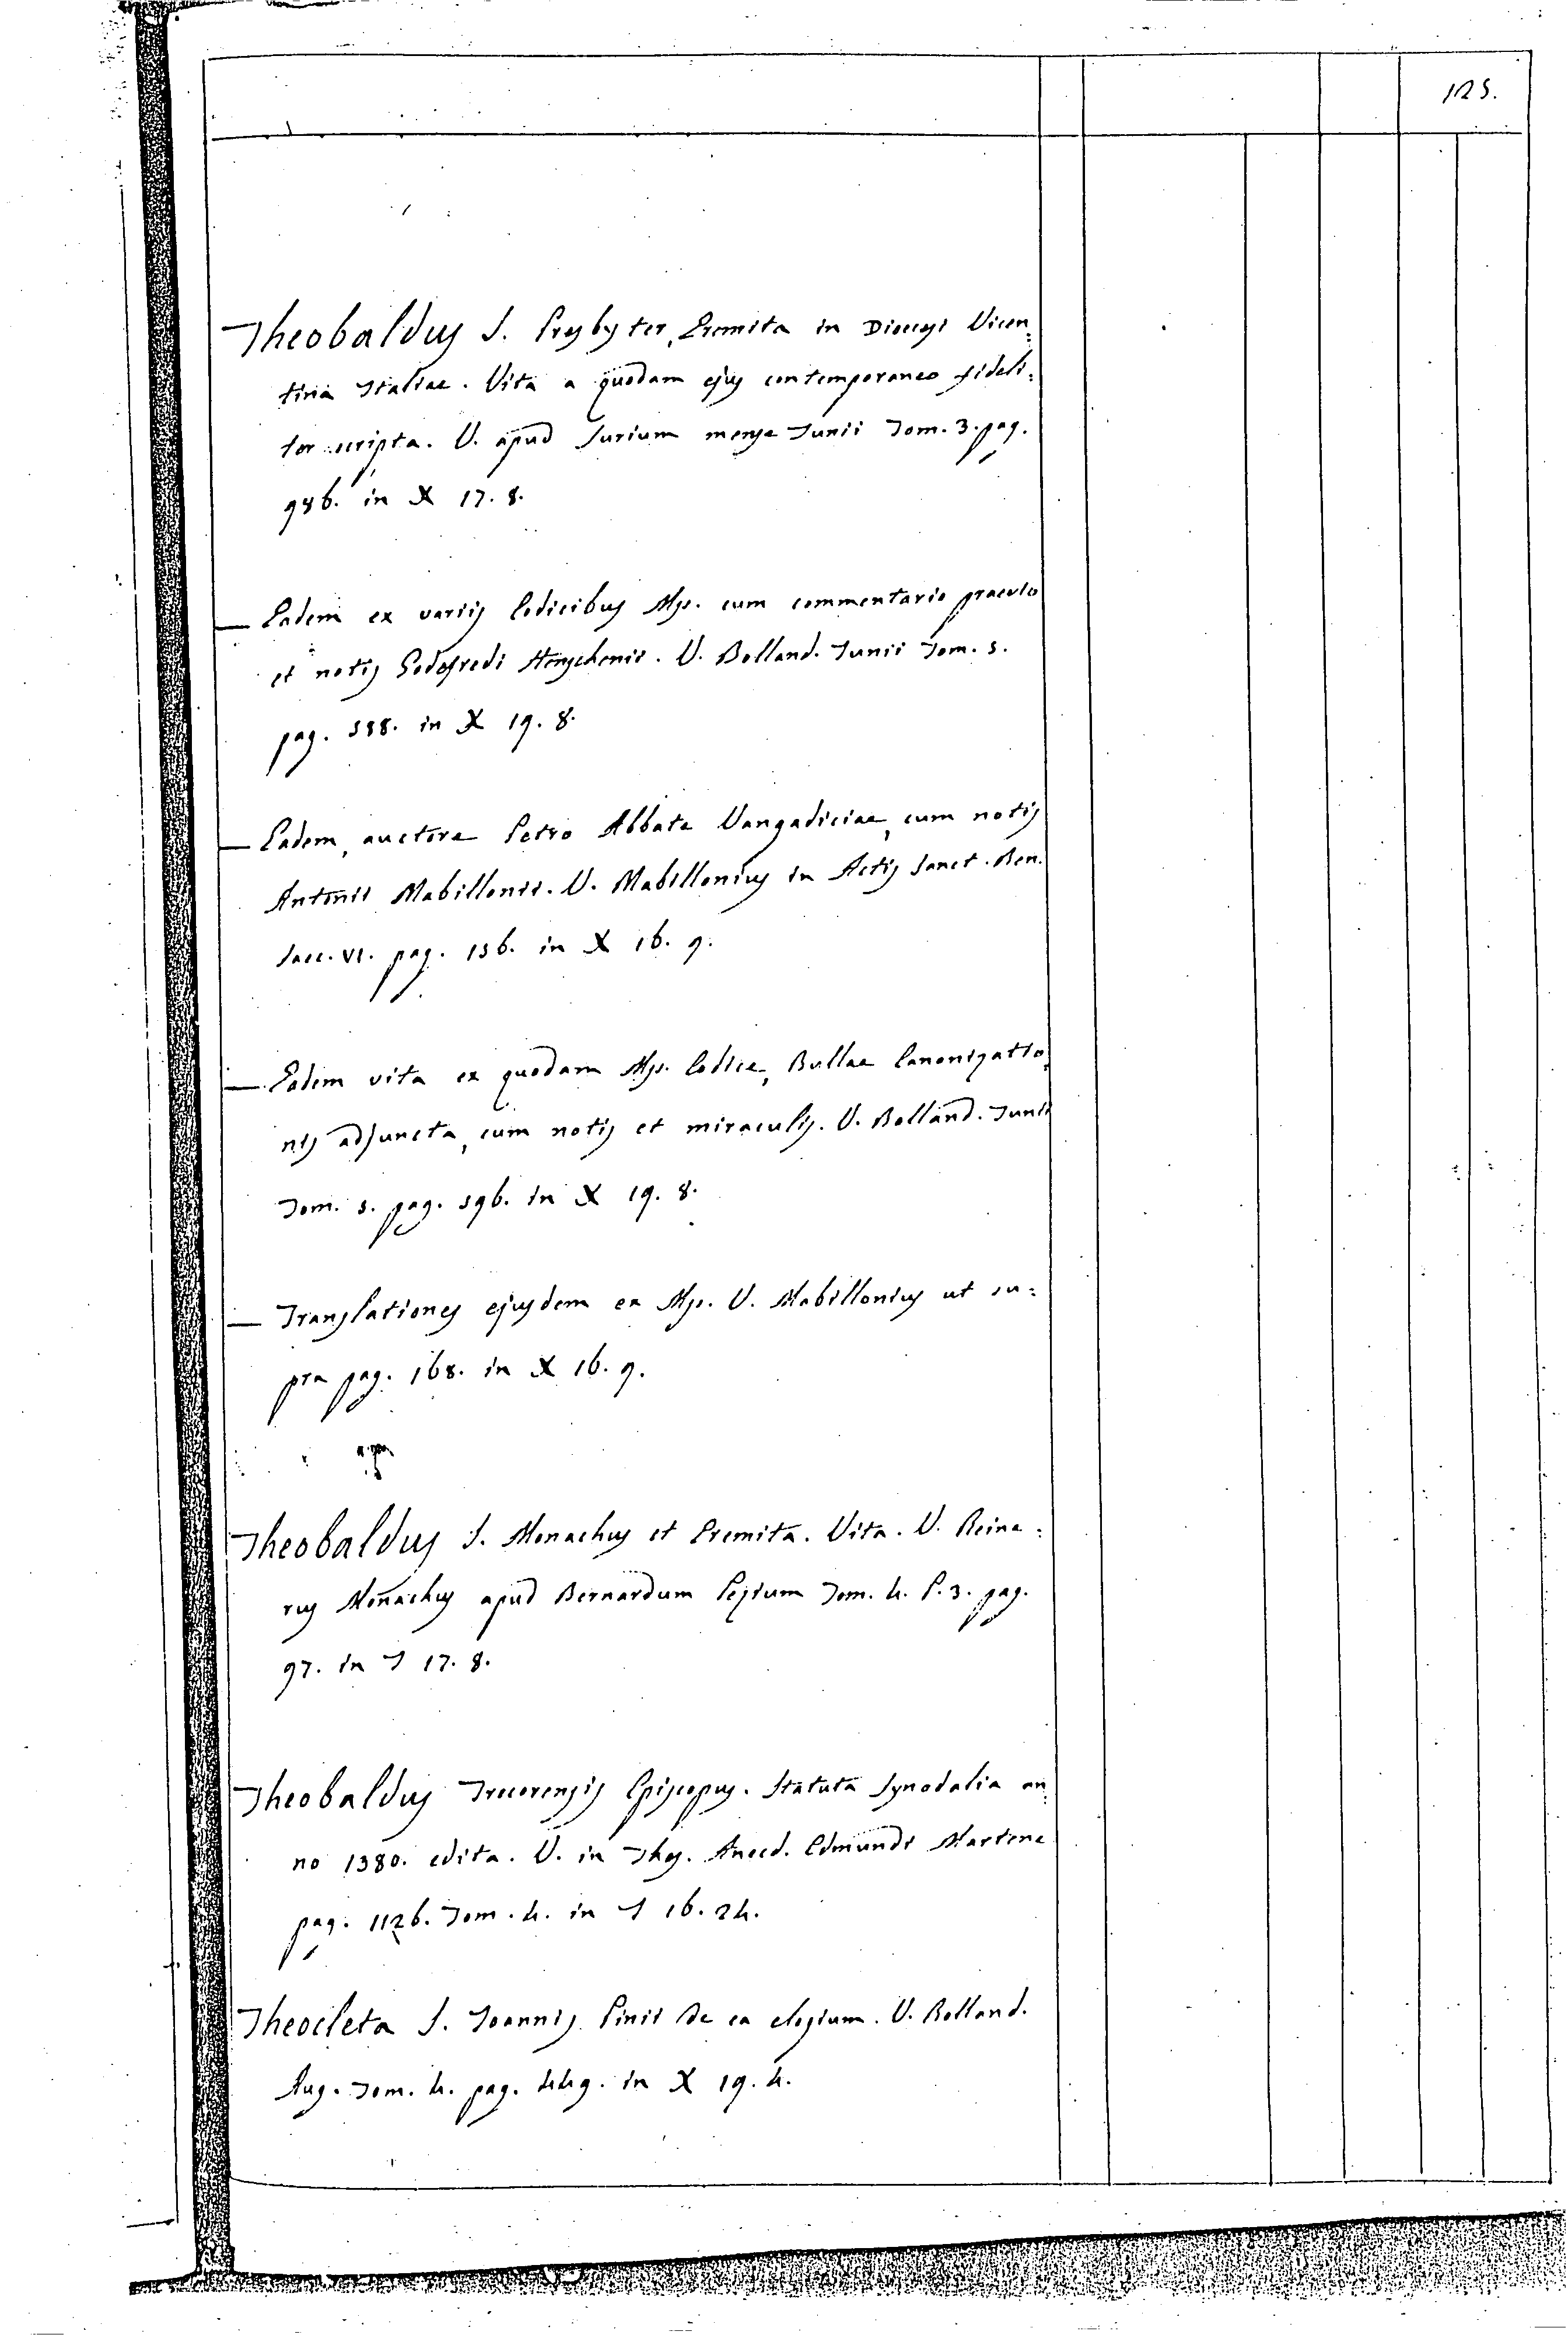 125.
Theobaldus S. Presbyter, Eremita in Dioecesi Vicen=
tina Italiae. Vita a quodam ejus contemporaneo fideli=
ter scripta. V. apud Surium mense Junii Tom. 3. pag.
986. in X 17. 8.
— Eadem ex variis Codicibus Mss. cum commentario praevio
et notis Godofredi Henschenii. V. Bolland. Junii Tom. 5.
pag. 588. in X 19. 8.
— Eadem, auctore Petro Abbate Vangadiciae, cum notis
Antonii Mabillonii. V. Mabillonius in Actis Sanct. Ben.
Saec. VI. pag. 156. in X 16. 9.
— Eadem vita ex quodam Ms. Codice, Bullae Canonizatio=
nis adjuncta, cum notis et miraculis. V. Bolland. Junii
Tom. 5. pag. 596. in X 19. 8.
— Translationes ejusdem ex Ms. V. Mabillonius ut su=
pra pag. 168. in X 16. 9.
Theobaldus S. Monachus et Eremita. Vita. V. Reine=
rus Monachus apud Bernardum Pezium Tom. 4. P. 3. pag.
97. in T 17. 8.
Theobaldus Trecorensis Episcopus. Statuta Synodalia an=
no 1380. edita. V. in Thes. Anecd. Edmundi Martene
pag. 1126. Tom. 4. in T 16. 24.
Theocleta S. Joannis Pinii de ea elogium. V. Bolland.
Aug. Tom. 4. pag. 449. in X 19. 4.